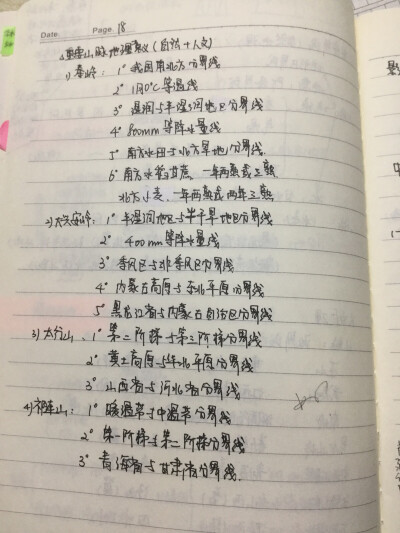 Date. Page. 18
重要山脉地理意义(自然+人文)
1) 秦岭: 1° 我国南北方分界线
2° 1月0℃等温线
3° 湿润与半湿润地区分界线
4° 800mm等降水量线
5° 南方水田与北方旱地分界线
6° 南方水稻甘蔗, 一年两熟或三熟
北方小麦, 一年两熟或两年三熟
2) 大兴安岭: 1° 半湿润地区与半干旱地区分界线
2° 400mm等降水量线
3° 季风区与非季风区分界线
4° 内蒙古高原与东北平原分界线
5° 黑龙江省与内蒙古自治区分界线
3) 太行山: 1° 第二阶梯与第三阶梯分界线
2° 黄土高原与华北平原分界线
3° 山西省与河北省分界线
4) 祁连山: 1° 暖温带与中温带分界线
2° 第一阶梯与第二阶梯分界线
3° 青海省与甘肃省分界线.